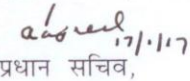 17/1/17
प्रधान सचिव,